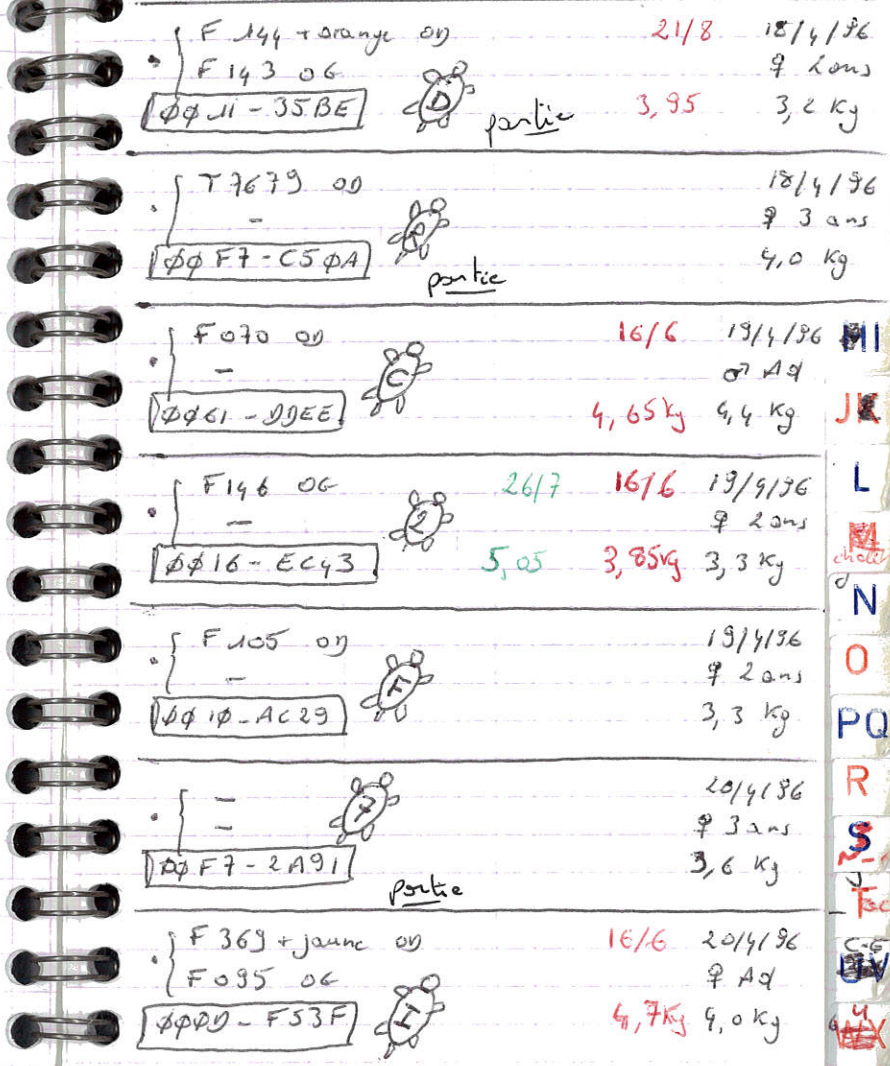 F 144 + orange OD 21/8 18/4/96
F 143 OG ♀ 2 ans
ØØ 11 - 35BE D partie 3,95 3,2 Kg
T7679 OD 18/4/96
- ♀ 3 ans
ØØ F7 - C5ØA partie 4,0 Kg
F070 OD 16/6 19/4/96
- C ♂ Ad
ØØ61 - DDEE 4,65kg 4,4 Kg
F146 OG 26/7 16/6 19/4/96
- 2 ♀ 2 ans
ØØ16 - EC43 5,05 3,85kg 3,3 Kg
F 105 OD 19/4/96
- F ♀ 2 ans
ØØ 1Ø - AC29 3,3 Kg
- 7 20/4/96
- ♀ 3 ans
ØØ F7 - 2A91 partie 3,6 Kg
F 369 + jaune OD 16/6 20/4/96
F 095 OG ♀ Ad
ØØØD - F53F H 4,7Kg 4,0 Kg
HI
JK
L
M
N
O
PQ
R
S
T
UV
WX